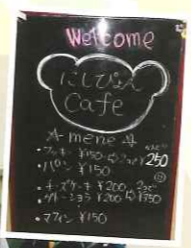 Welcome
にしぴょん
Cafe
A mene
¥150 2コで 250
パン ¥150
チーズケーキ ¥200 2コで
¥200 ¥350
マフィン ¥150